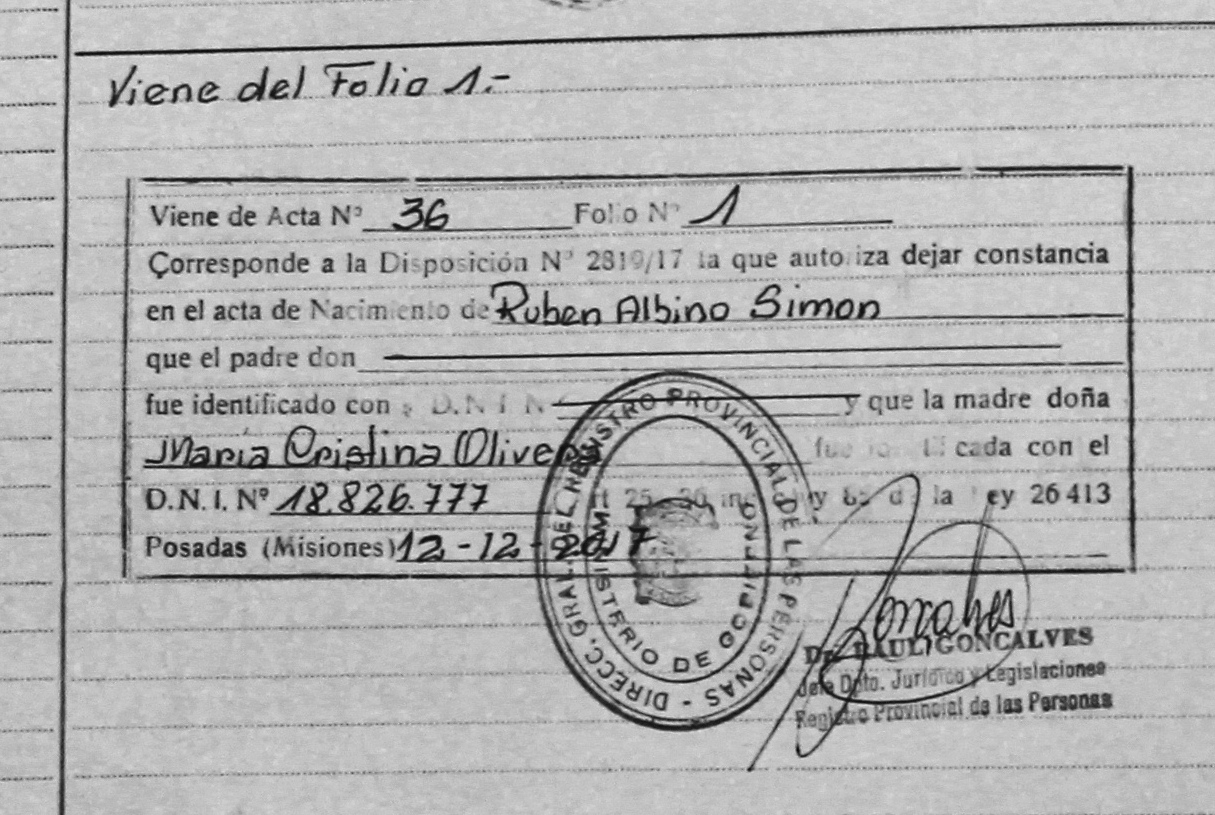 Viene del Folio 1.-
Viene de Acta Nº 36 Folio Nº 1
Corresponde a la Disposición Nº 2819/17 la que autoriza dejar constancia
en el acta de Nacimiento de Ruben Albino Simon
que el padre don
fue identificado con D.N.I. Nº y que la madre doña
Maria Cristina Olivera
D.N.I. Nº 18.826.777 la ley 26413
Posadas (Misiones) 12-12-2017
DIRECC. GRAL. DEL REGISTRO PROVINCIAL DE LAS PERSONAS -
MINISTERIO DE GOBIERNO
Dr. RAUL GONCALVES
Jefe Dpto. Jurídico y Legislaciones
Registro Provincial de las Personas